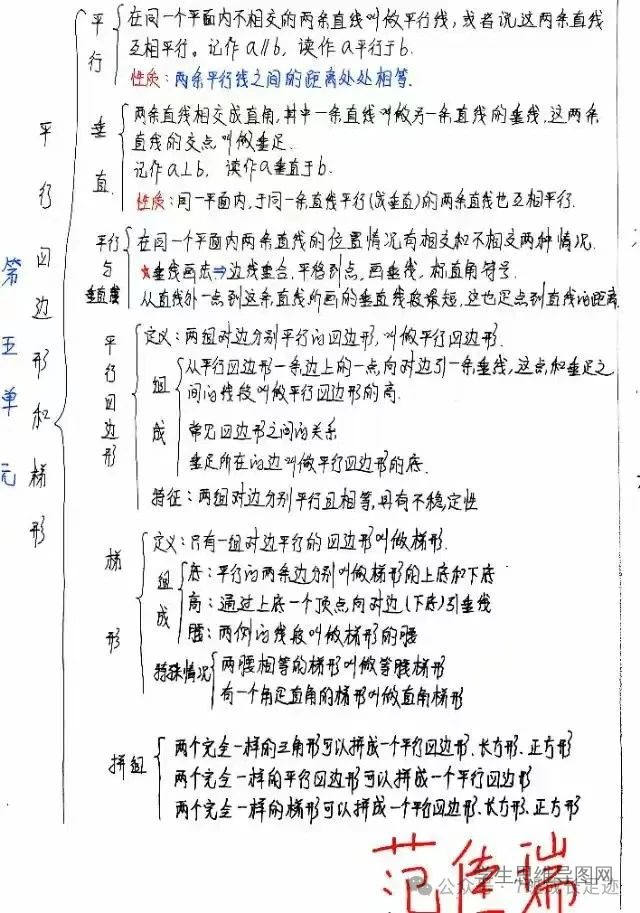 第五单元
平行四边形和梯形
平行
在同一个平面内不相交的两条直线叫做平行线,或者说这两条直线
互相平行。记作a∥b,读作a平行于b.
性质:两条平行线之间的距离处处相等.
垂直
两条直线相交成直角,其中一条直线叫做另一条直线的垂线,这两条
直线的交点叫做垂足.
记作a⊥b,读作a垂直于b.
性质:同一平面内,于同一条直线平行(或垂直)的两条直线也互相平行.
平行与垂直
在同一个平面内两条直线的位置情况有相交和不相交两种情况.
★垂线画法⇒边线重合,平移到点,画垂线,标直角符号.
从直线外一点到这条直线所画的垂直线段最短,这也是点到直线的距离.
平行四边形
定义:两组对边分别平行的四边形,叫做平行四边形.
组成
从平行四边形一条边上的一点向对边引一条垂线,这点和垂足之
间的线段叫做平行四边形的高.
常见四边形之间的关系
垂足所在的边叫做平行四边形的底.
特征:两组对边分别平行且相等,具有不稳定性
梯形
定义:只有一组对边平行的四边形叫做梯形.
组成
底:平行的两条边分别叫做梯形的上底和下底
高:通过上底一个顶点向对边(下底)引垂线
腰:两侧的线段叫做梯形的腰
特殊情况
两腰相等的梯形叫做等腰梯形
有一个角是直角的梯形叫做直角梯形
拼组
两个完全一样的三角形可以拼成一个平行四边形、长方形、正方形
两个完全一样的平行四边形可以拼成一个平行四边形
两个完全一样的梯形可以拼成一个平行四边形、长方形、正方形
范佳瑞
学生思维导图网
公众号
成长足迹